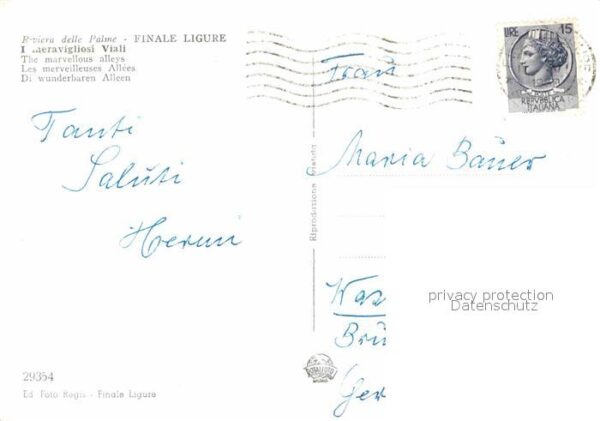 Riviera delle Palme - FINALE LIGURE
I meravigliosi Viali
The marvellous alleys
Les merveilleuses Allées
Di wunderbaren Alleen
Tanti
Saluti
Hermi
29354
Ed Foto Regis - Finale Ligure
Riproduzione Vietata
LIRE 15
REPVBBLICA
ITALIANA
Frau
Maria Bauer
Kas
Brü
Ger
privacy protection
Datenschutz